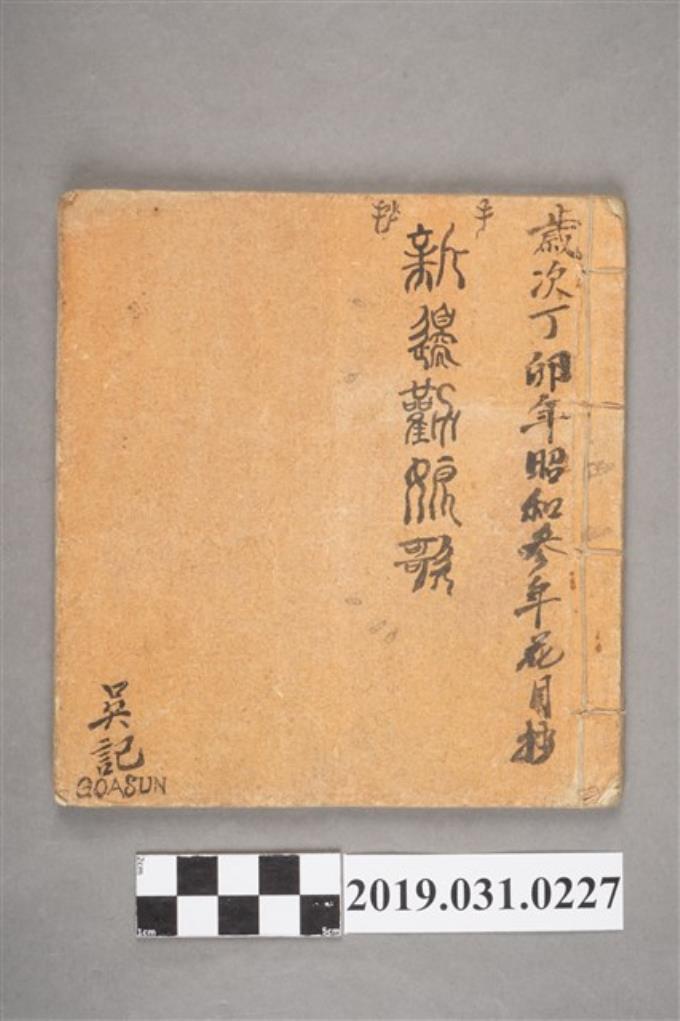 歲次丁卯年昭和參年花月抄
手抄
新編勸娘歌
吳記
GOASUN
2cm
1cm 5cm
2019.031.0227